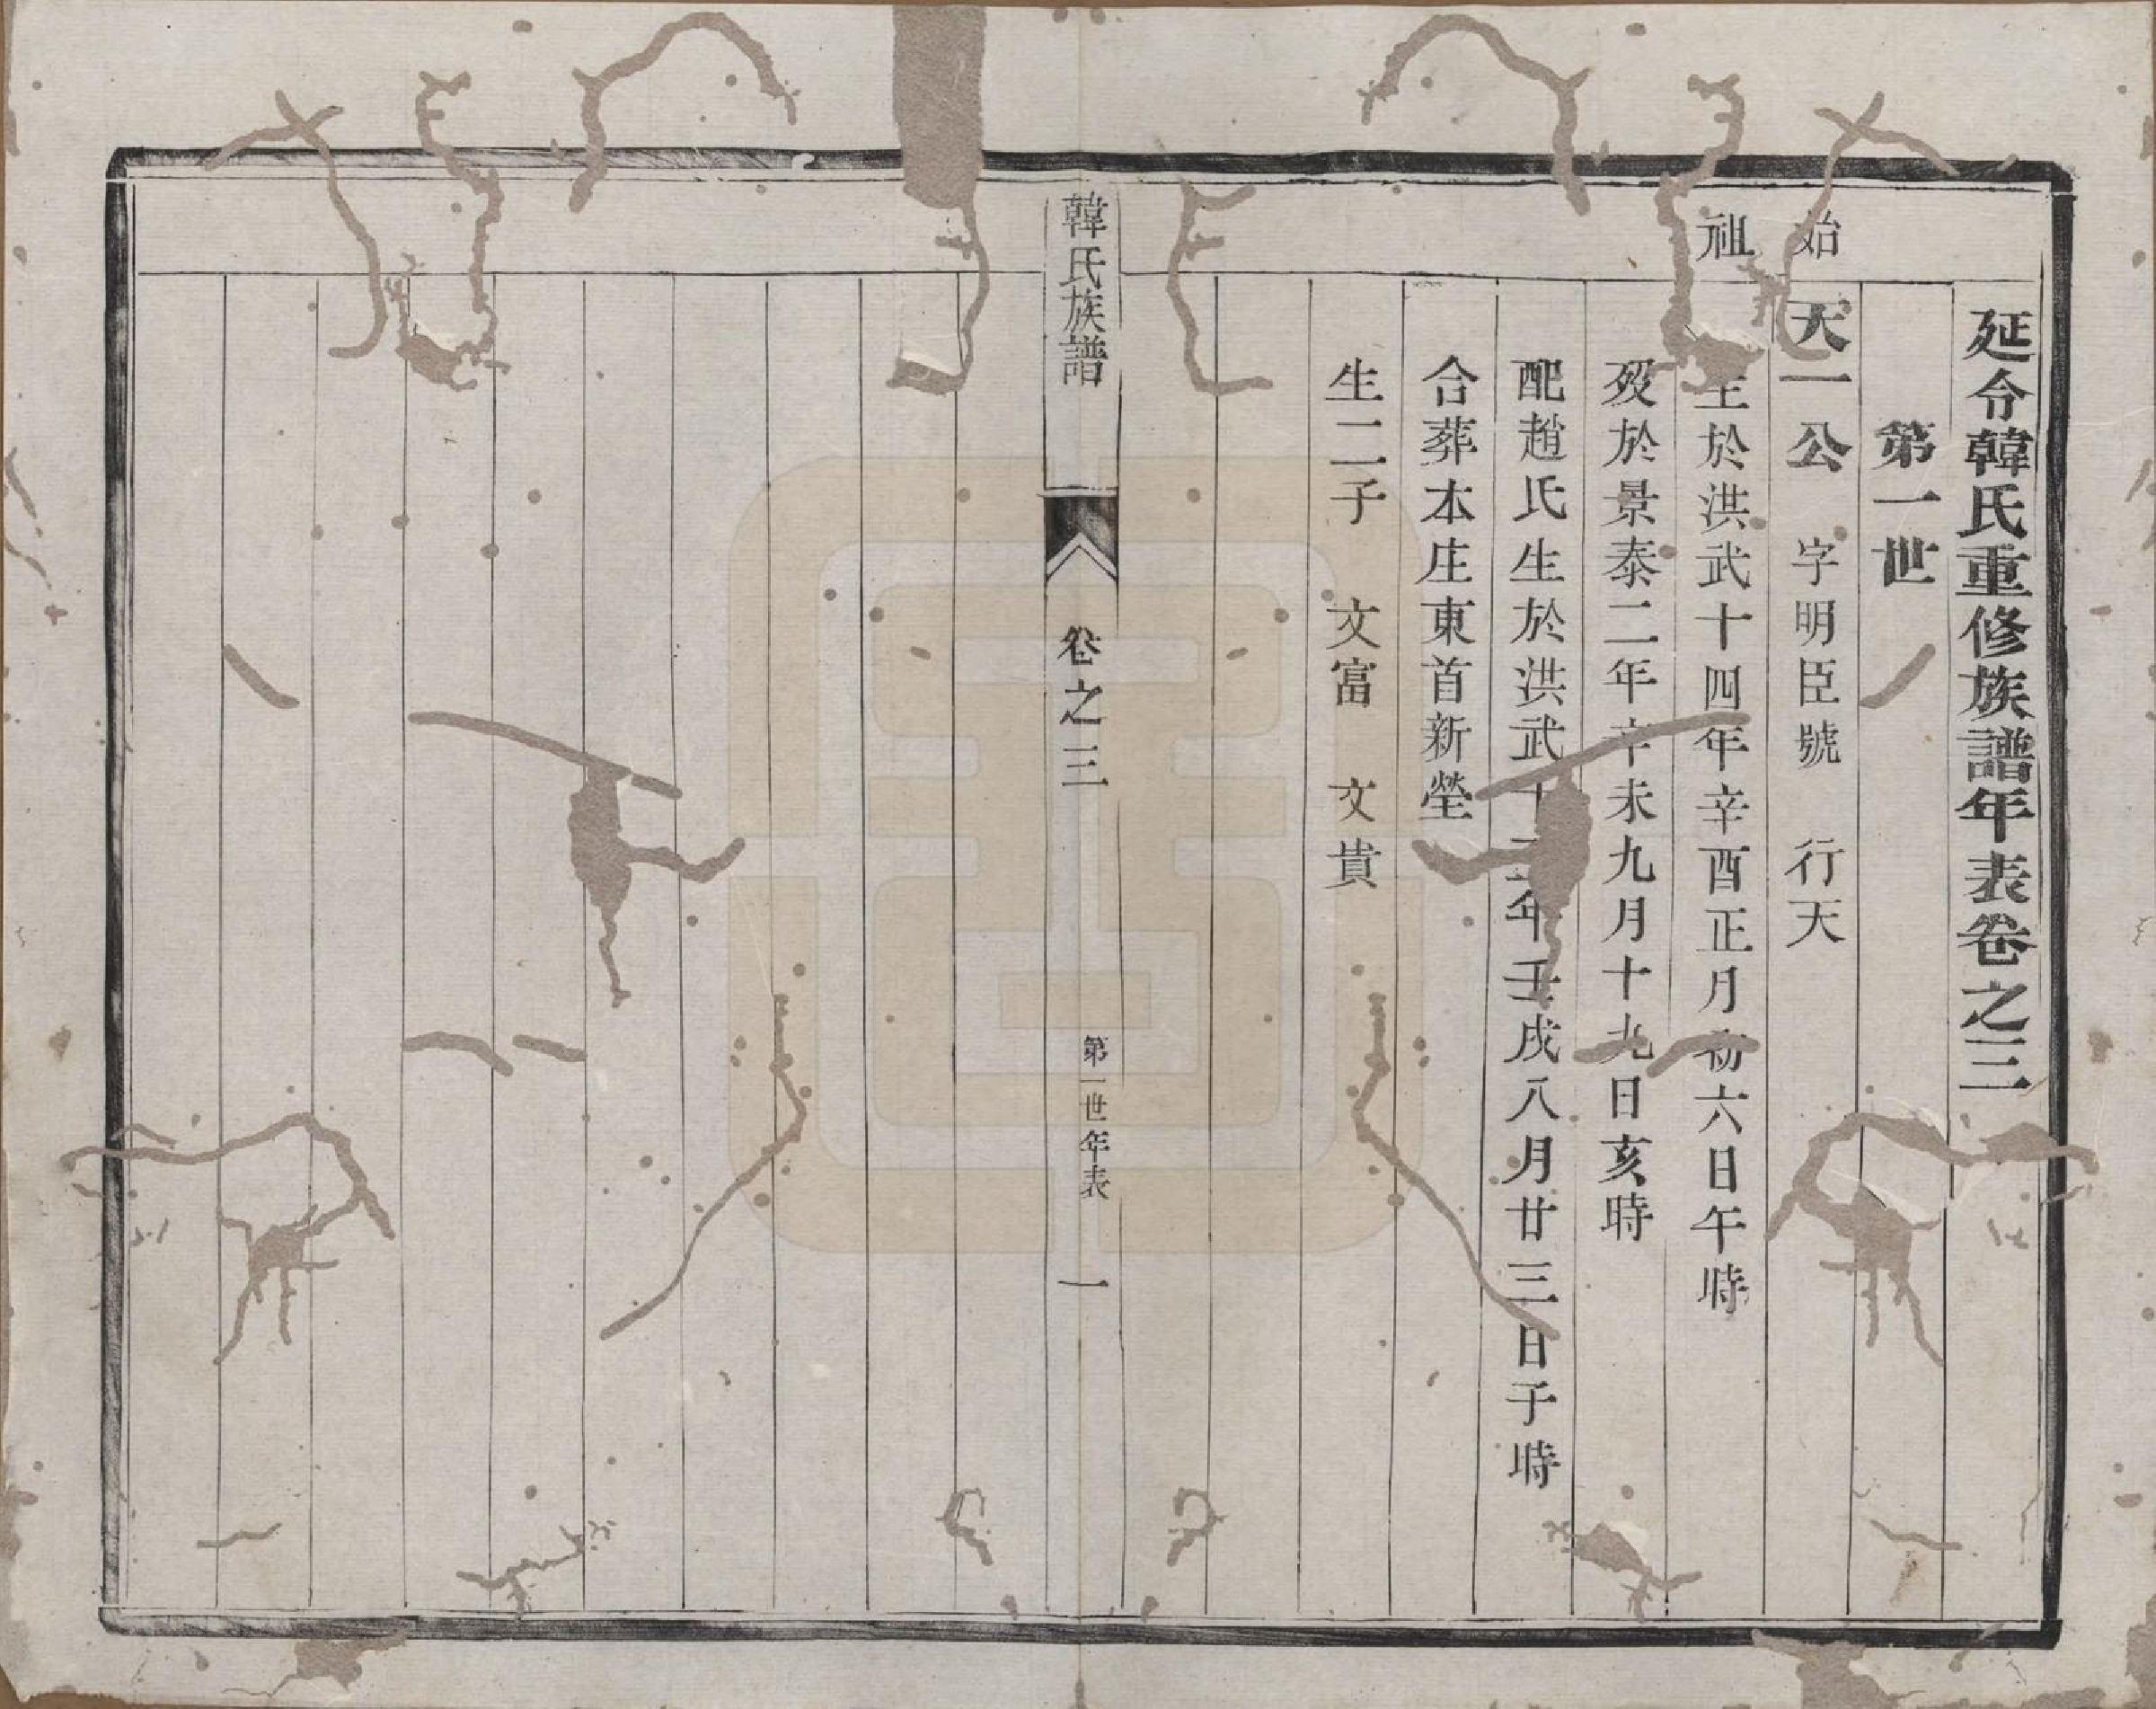 延令韓氏重修族譜年表卷之三
第一世
始祖
天一公 字明臣號 行天
生於洪武十四年辛酉正月初六日午時
歿於景泰二年辛未九月十九日亥時
配趙氏生於洪武十五年壬戌八月廿三日子時
合葬本庄東首新塋
生二子 文富 文貴
韓氏族譜 卷之三 第一世年表 一